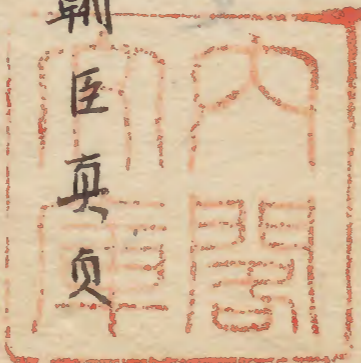 朝臣真貞
内閣
文庫